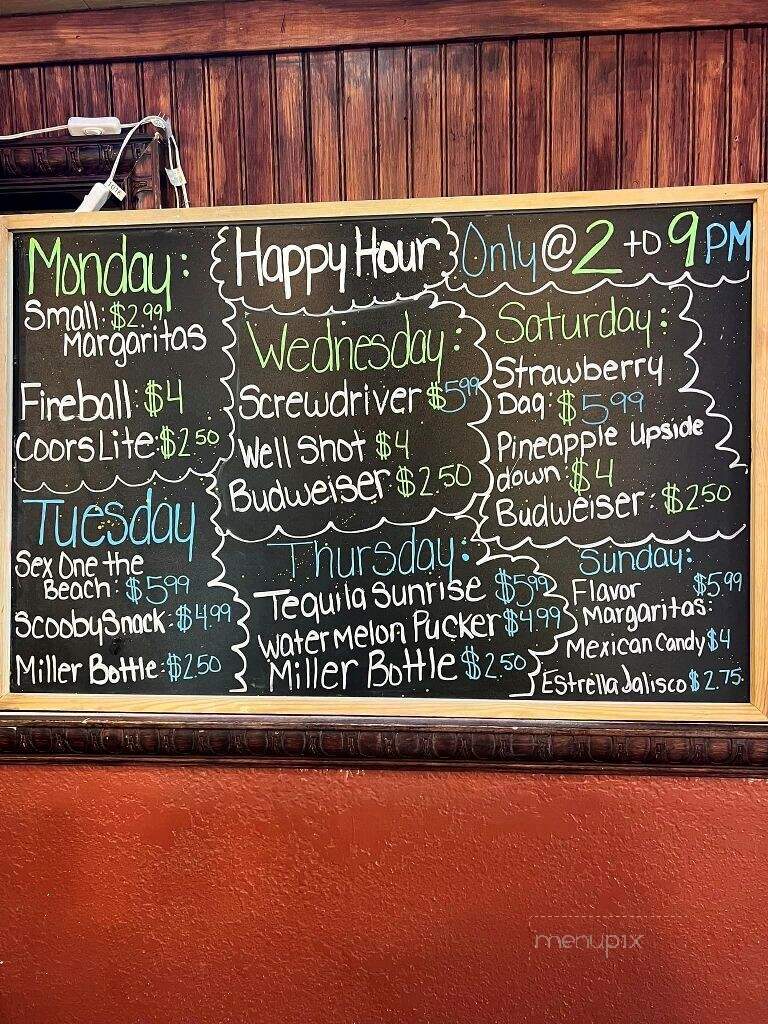 Happy Hour Only @ 2 to 9 PM
Monday:
Small: $2.99
Margaritas
Fireball: $4
Coors Lite: $2.50
Tuesday
Sex One the
Beach: $5.99
Scooby Snack: $4.99
Miller Bottle: $2.50
Wednesday:
Screwdriver $5.99
Well Shot $4
Budweiser $2.50
Thursday:
Tequila Sunrise $5.99
Watermelon Pucker $4.99
Miller Bottle $2.50
Saturday:
Strawberry
Daq: $5.99
Pineapple Upside
down: $4
Budweiser: $2.50
Sunday:
Flavor $5.99
Margaritas:
Mexican Candy $4
Estrella Jalisco $2.75
menupix